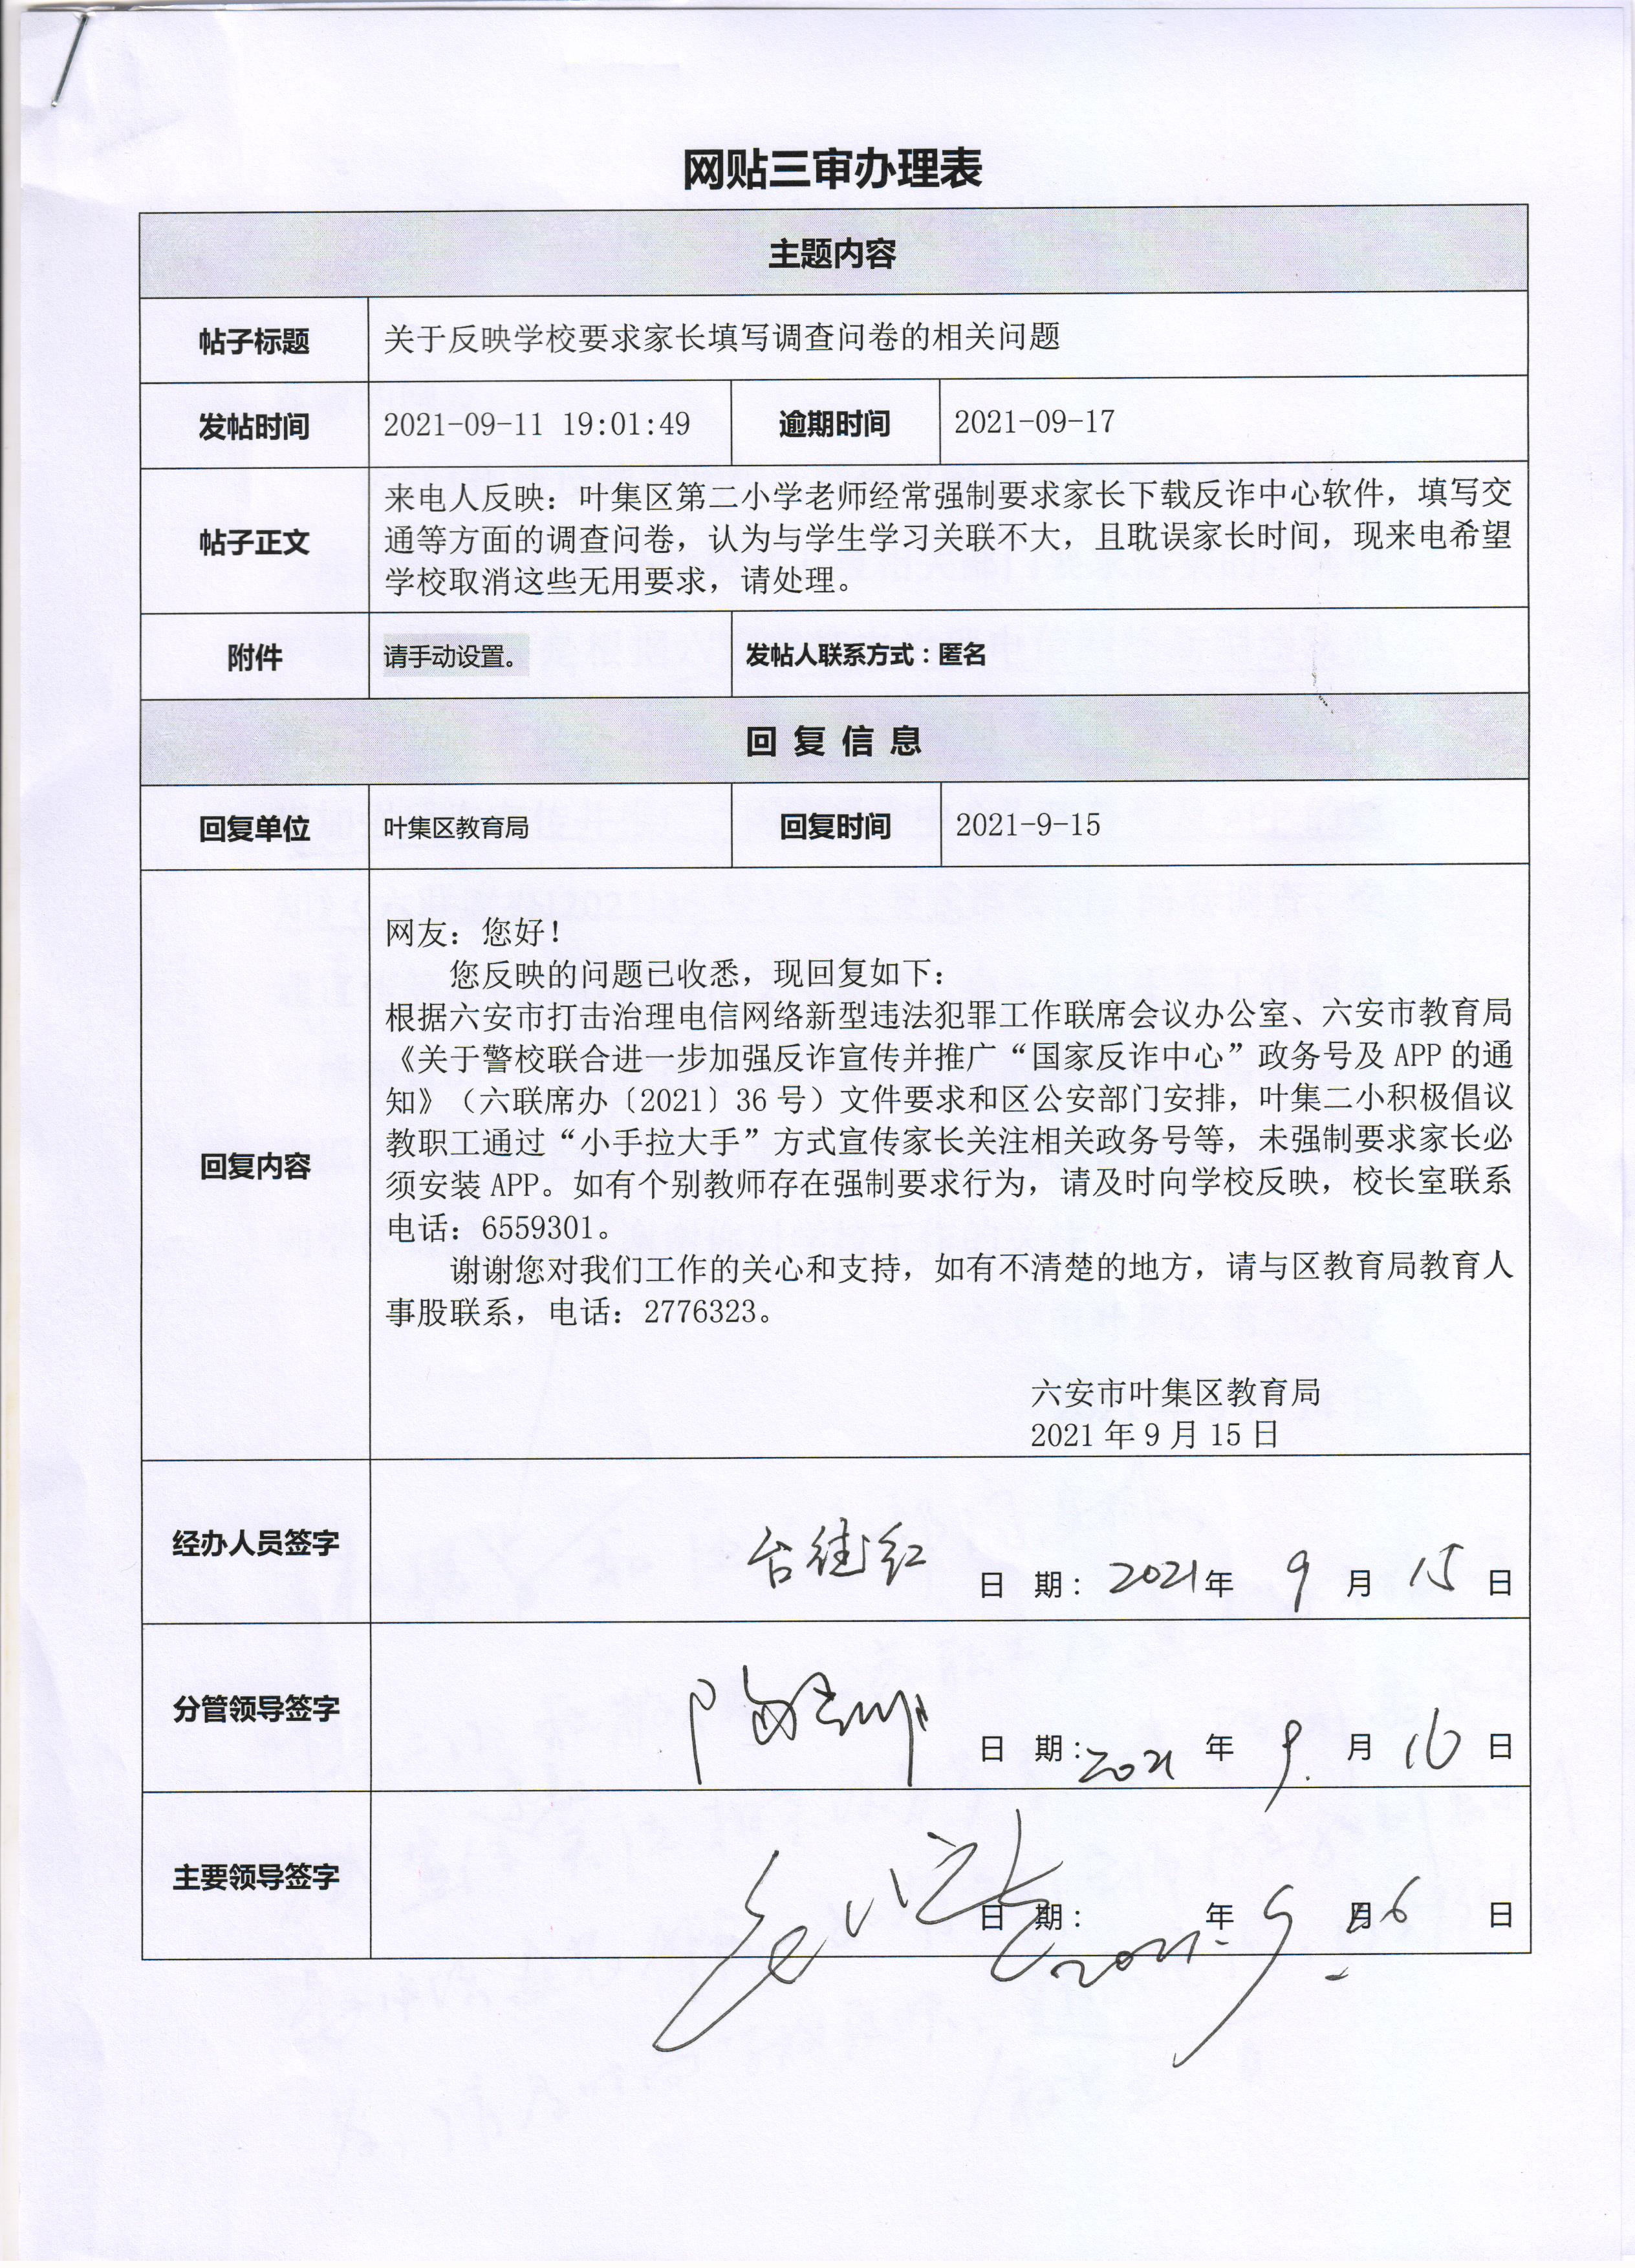 网贴三审办理表
主题内容
帖子标题 关于反映学校要求家长填写调查问卷的相关问题
发帖时间 2021-09-11 19:01:49 逾期时间 2021-09-17
帖子正文
来电人反映：叶集区第二小学老师经常强制要求家长下载反诈中心软件，填写交
通等方面的调查问卷，认为与学生学习关联不大，且耽误家长时间，现来电希望
学校取消这些无用要求，请处理。
附件 请手动设置。 发帖人联系方式：匿名
回复信息
回复单位 叶集区教育局 回复时间 2021-9-15
回复内容
网友：您好！
您反映的问题已收悉，现回复如下：
根据六安市打击治理电信网络新型违法犯罪工作联席会议办公室、六安市教育局
《关于警校联合进一步加强反诈宣传并推广“国家反诈中心”政务号及 APP 的通
知》（六联席办〔2021〕36 号）文件要求和区公安部门安排，叶集二小积极倡议
教职工通过“小手拉大手”方式宣传家长关注相关政务号等，未强制要求家长必
须安装 APP。如有个别教师存在强制要求行为，请及时向学校反映，校长室联系
电话：6559301。
谢谢您对我们工作的关心和支持，如有不清楚的地方，请与区教育局教育人
事股联系，电话：2776323。
六安市叶集区教育局
2021 年 9 月 15 日
经办人员签字 日 期：2021年 9 月 15 日
分管领导签字 日 期：2021 年 9 月 16 日
主要领导签字 日 期： 年 月 日
2021.9.